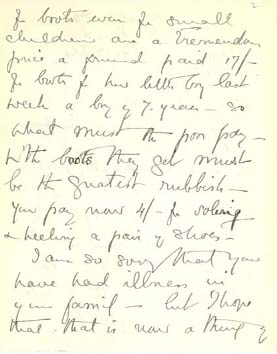 2
for boots even for small
children are a tremendous
price a friend paid 17/-
for boots for her little boy last
week a boy of 7. years - so
what must the poor pay -
With boots they get must
be the greatest rubbish -
You pay now 4/- for soleing
& heeling a pair of shoes -
I am so sorry that you
have had illness in
your family - but I hope
that that is now a thing of